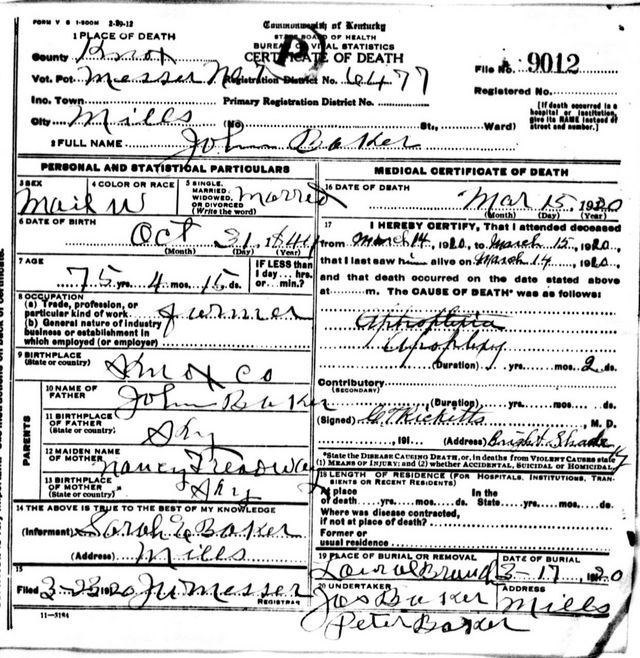 FORM V S 1-500M 2-29-12
Commonwealth of Kentucky
STATE BOARD OF HEALTH
BUREAU OF VITAL STATISTICS
CERTIFICATE OF DEATH
1 PLACE OF DEATH
County Knox
Vot. Pct Messer No 7 Registration District No. 6477
File No. 9012
Registered No.
Inc. Town Primary Registration District No.
City Mills (No. St., Ward)
[If death occurred in a hospital or institution, give its NAME instead of street and number.]
2 FULL NAME John Baker
PERSONAL AND STATISTICAL PARTICULARS
3 SEX Mail
4 COLOR OR RACE W
5 SINGLE, MARRIED, WIDOWED, OR DIVORCED (Write the word) Marred
6 DATE OF BIRTH
Oct 31, 1844
(Month) (Day) (Year)
7 AGE
75 yrs. 4 mos. 15 ds.
IF LESS than 1 day... hrs. or... min.?
8 OCCUPATION
(a) Trade, profession, or particular kind of work farmer
(b) General nature of industry business or establishment in which employed (or employer)
9 BIRTHPLACE
(State or country) Knox Co
PARENTS
10 NAME OF FATHER John Baker
11 BIRTHPLACE OF FATHER (State or country) Ky
12 MAIDEN NAME OF MOTHER Nancy Treadway
13 BIRTHPLACE OF MOTHER (State or country) Ky
14 THE ABOVE IS TRUE TO THE BEST OF MY KNOWLEDGE
(Informant) Sarah E Baker
(Address) Mills
15
Filed 3-23 1920 Messer
REGISTRAR
11-5194
MEDICAL CERTIFICATE OF DEATH
16 DATE OF DEATH
Mar 15, 1920
(Month) (Day) (Year)
17 I HEREBY CERTIFY, That I attended deceased
from March 14, 1920, to March 15, 1920
that I last saw him alive on March 14, 1920
and that death occurred on the date stated above
at m. The CAUSE OF DEATH* was as follows:
Apoplexy
(Duration) yrs. mos. 2 ds.
Contributory
(SECONDARY)
(Duration) yrs. mos. ds.
(Signed) Ricketts, M. D.
, 191 (Address) Bright Shade Ky
*State the DISEASE CAUSING DEATH, or, in deaths from VIOLENT CAUSES state (1) MEANS OF INJURY; and (2) whether ACCIDENTAL, SUICIDAL OR HOMICIDAL.
18 LENGTH OF RESIDENCE (FOR HOSPITALS, INSTITUTIONS, TRANSIENTS OR RECENT RESIDENTS)
At place of death yrs. mos. ds. In the State yrs. mos. ds.
Where was disease contracted, if not at place of death?
Former or usual residence
19 PLACE OF BURIAL OR REMOVAL
DATE OF BURIAL
3-17, 1920
20 UNDERTAKER
Jas Baker
Peter Baker
ADDRESS
Mills